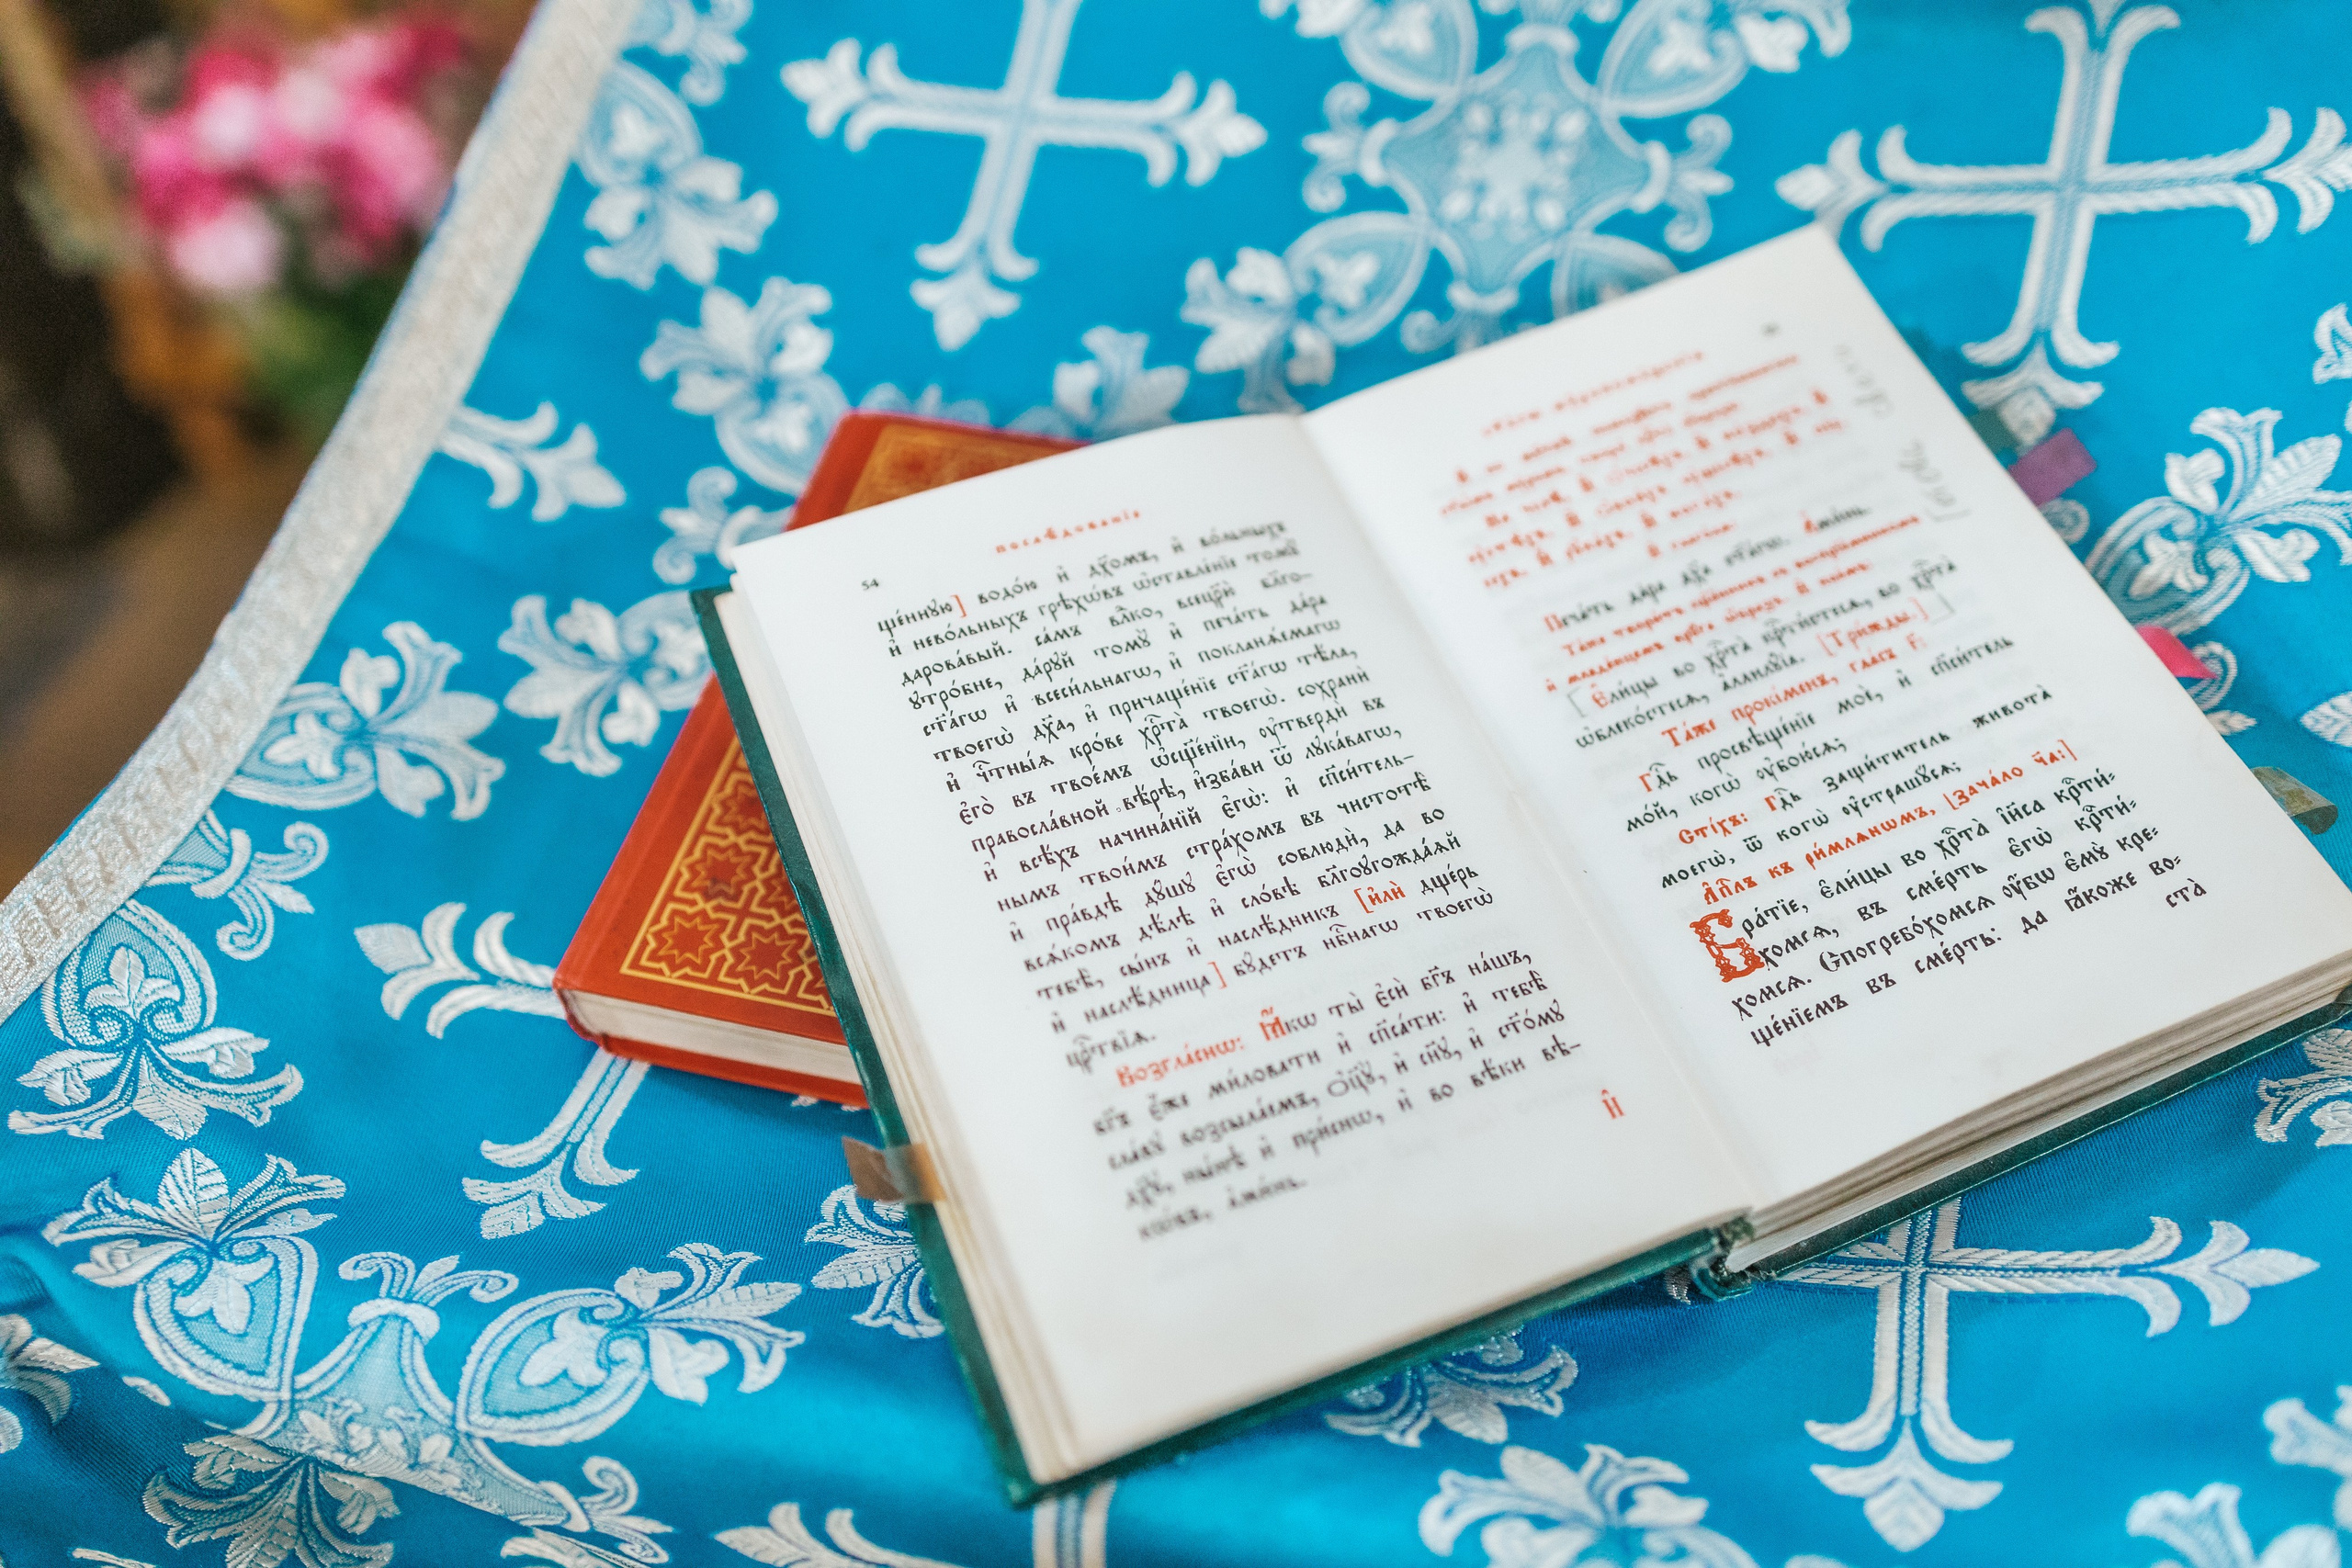 послѣдованїе
54
ще́ннꙋю] водо́ю и҆ дх҃омъ, и҆ во́льныхъ
и҆ нево́льныхъ грѣхѡ́въ ѡ҆ставле́нїе томꙋ̀
дарова́вый. са́мъ влⷣко, всецр҃ѝ бл҃го-
ꙋтро́бне, да́рꙋй томꙋ̀ и҆ печа́ть да́ра
ст҃а́гѡ и҆ всеси́льнагѡ, и҆ покланѧ́емагѡ
твоегѡ̀ дх҃а, и҆ причаще́нїе ст҃а́гѡ тѣ́ла,
и҆ чⷭ҇тны́ѧ кро́ве хрⷭ҇та̀ твоегѡ̀. сохранѝ
є҆го̀ въ твое́мъ ѡ҆сщ҃е́нїи, ᲂу҆твердѝ въ
правосла́вной вѣ́рѣ, и҆зба́ви ѿ лꙋка́вагѡ,
и҆ всѣ́хъ начина́нїй є҆гѡ̀: и҆ сп҃си́тель-
нымъ твои́мъ стра́хомъ въ чистотѣ̀
и҆ пра́вдѣ дꙋ́шꙋ є҆гѡ̀ соблюдѝ, да во
всѧ́комъ дѣ́лѣ и҆ сло́вѣ бл҃гоꙋгожда́ѧй
тебѣ̀, сы́нъ и҆ наслѣ́дникъ [и҆лѝ дще́рь
и҆ наслѣ́дница] бꙋ́детъ нбⷭ҇нагѡ твоегѡ̀
црⷭ҇твїѧ.
Возгла́сиѡ: Ꙗ҆́кѡ ты̀ є҆сѝ бг҃ъ на́шъ,
бг҃ъ є҆́же ми́ловати и҆ сп҃са́ти: и҆ тебѣ̀
сла́вꙋ возсыла́емъ, Ѻ҆ц҃ꙋ̀, и҆ сн҃ꙋ, и҆ ст҃о́мꙋ
дх҃ꙋ, ны́нѣ и҆ при́снѡ, и҆ во вѣ́ки вѣ-
кѡ́въ, а҆ми́нь.
и҃і
Печа́ть да́ра дх҃а ст҃а́гѡ. А҆ми́нь.
[Є҆ли́цы во хрⷭ҇та̀ крⷭ҇ти́стесѧ, во хрⷭ҇та̀
ѡ҆блеко́стесѧ, а҆ллилꙋ́їа. [Три́жды.]]
Та́же прокі́менъ, гла́съ г҃:
Гдⷭ҇ь просвѣще́нїе мое́, и҆ сп҃си́тель
мо́й, когѡ̀ ᲂу҆бою́сѧ;
Сті́хъ: Гдⷭ҇ь защи́титель живота̀
моегѡ̀, ѿ когѡ̀ ᲂу҆страшꙋ́сѧ;
А҆пⷭ҇лъ къ ри́млѧнѡмъ, [зача́ло ч҃а:]
Бра́тїе, є҆ли́цы во хрⷭ҇та̀ і҆и҃са крⷭ҇ти́-
хомсѧ, въ сме́рть є҆гѡ̀ крⷭ҇ти́-
хомсѧ. Спогребо́хомсѧ ᲂу҆́бѡ є҆мꙋ̀ кре-
ще́нїемъ въ сме́рть: да ꙗ҆́коже во-
ста̀